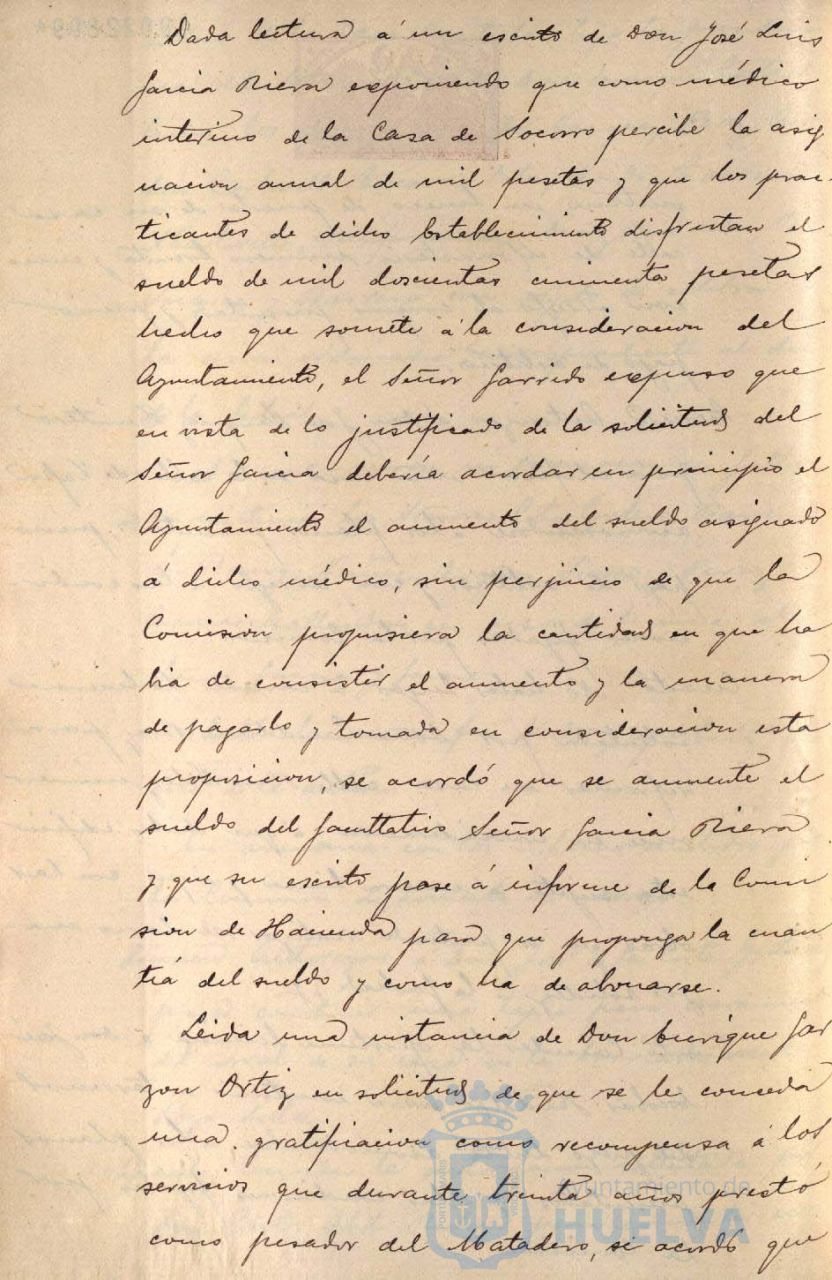 Dada lectura á un escrito de Don José Luis
Garcia Riera exponiendo que como médico
interino de la Casa de Socorro percibe la asig
nacion anual de mil pesetas y que los prac-
ticantes de dicho Establecimiento disfrutan el
sueldo de mil doscientas cincuenta pesetas
hecho que somete á la consideracion del
Ayuntamiento, el Señor Garrido expuso que
en vista de lo justificado de la solicitud del
Señor Garcia debería acordar en principio el
Ayuntamiento el aumento del sueldo asignado
á dicho médico, sin perjuicio de que la
Comision propusiera la cantidad en que ha
bia de consistir el aumento y la manera
de pagarlo y tomada en consideracion esta
proposicion, se acordó que se aumente el
sueldo del facultativo Señor Garcia Riera
y que su escrito pase á informe de la Comi
sion de Hacienda para que proponga la cuan
tiá del sueldo y como ha de abonarse.
Leida una instancia de Don Enrique Gar
zon Ortiz en solicitud de que se le conceda
una gratificacion como recompensa á los
servicios que durante treinta años prestó
como pesador del Matadero, se acordó que
Ayuntamiento de
HUELVA